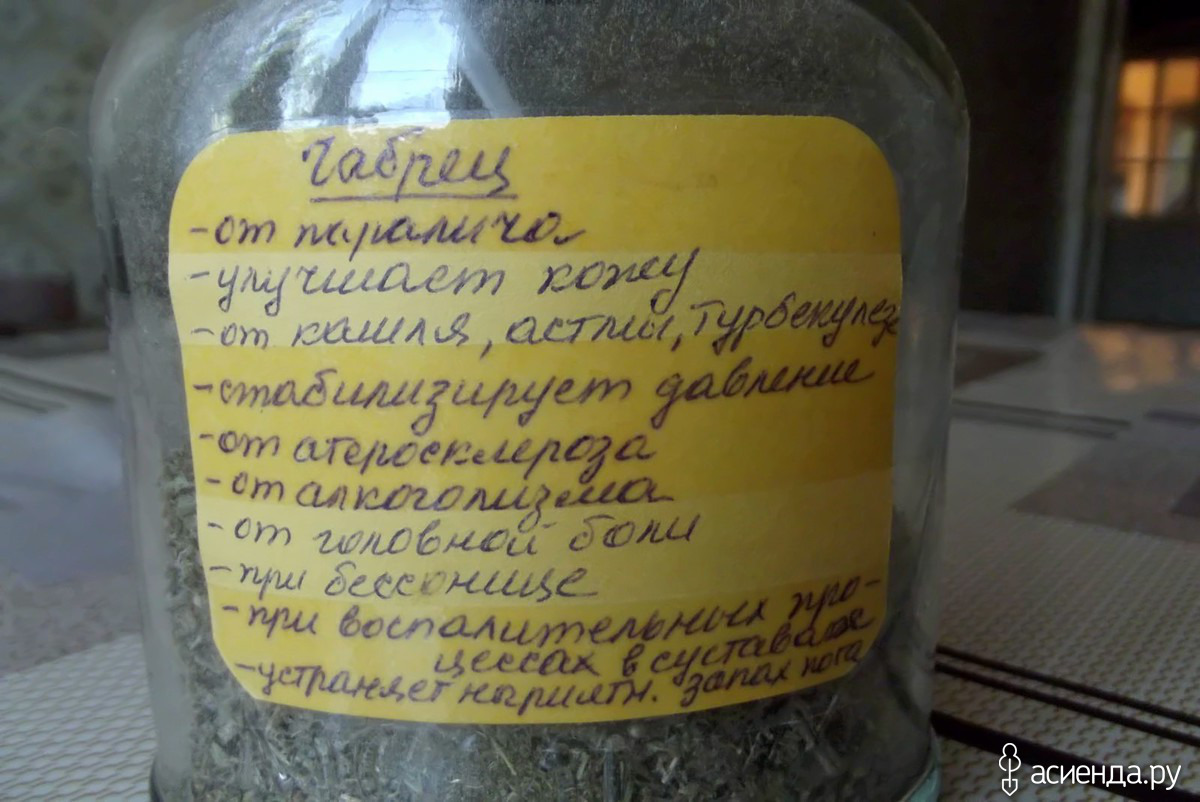 Чабрец
-от паралича
-улучшает кожу
-от кашля, астмы, турбекулеза
-стабилизирует давление
-от атеросклероза
-от алкоголизма
-от головной боли
-при бессонице
-при воспалительных про-
цессах в суставах
-устраняет неприятн. запах пота
асиенда.ру